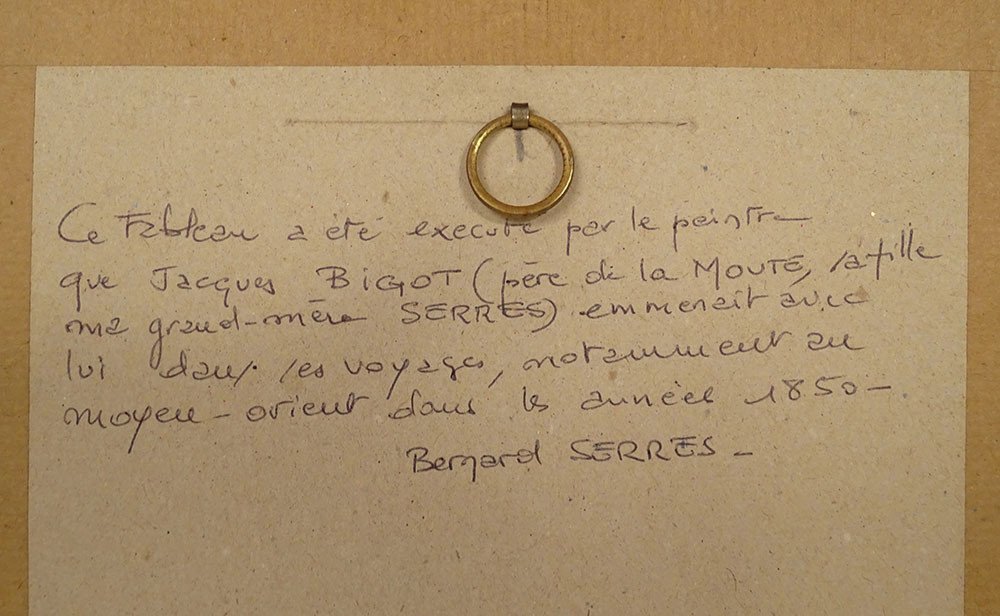 Ce Tableau a été executé par le peintre
que Jacques BIGOT (père de la MOUTE, sa fille
ma grand-mère SERRES) emmenait avec
lui dans ses voyages, notamment au
moyen-orient dans les années 1850-
Bernard SERRES-